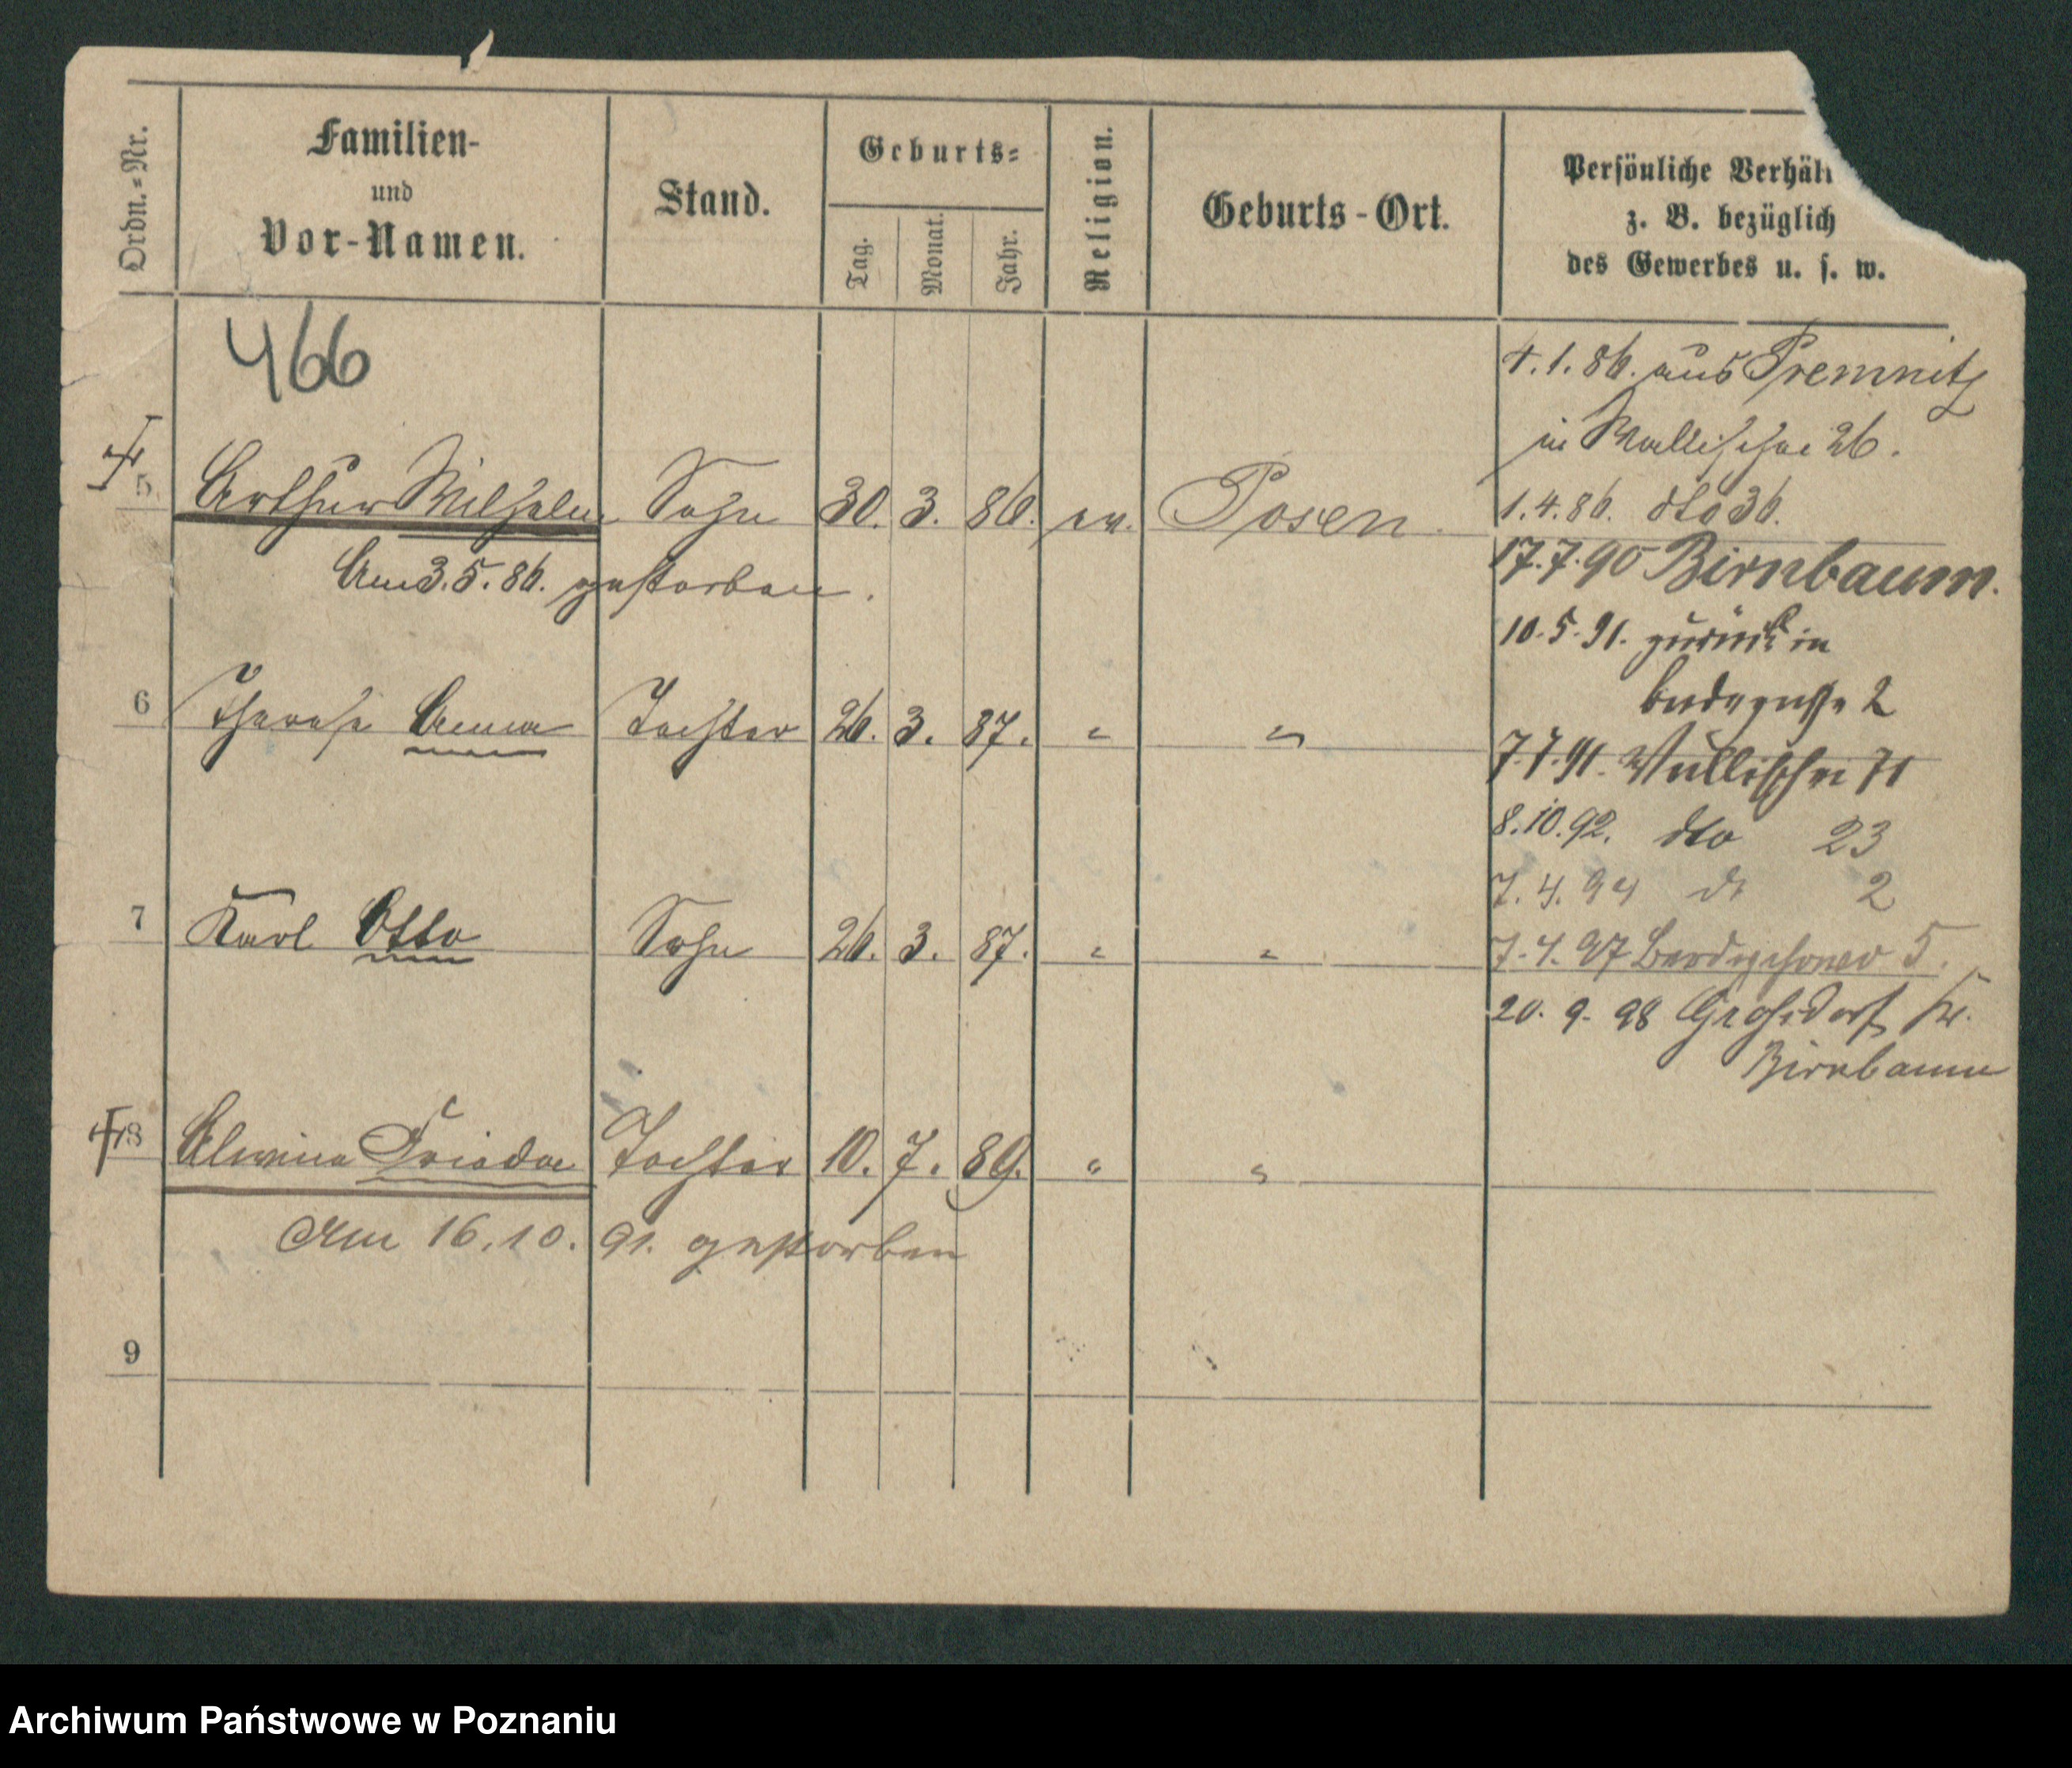 Ordn.-Nr.
Familien-
und
Vor-Namen.
Stand.
Geburts-
Tag.
Monat.
Jahr.
Religion.
Geburts-Ort.
Persönliche Verhäl
z. B. bezüglich
des Gewerbes u. s. w.
466
4.1.86. aus Premnitz
in Wallischei 26.
5 Arthur Wilhelm Sohn 30. 3. 86. ev. Posen
1.4.86. dto 36.
Am 3.5.86. gestorben.
17.7.90 Birnbaum.
10.5.91. zurück in
2
6 Therese Anna Tochter 26. 3. 87. " "
7.7.91. Wallischei 71
8.10.92. dto 23
7.4.94 dt 2
7 Karl Otto Sohn 26. 3. 87. " "
7.4.97 5.
20.9.98 Großdorf Kr.
Birnbaum
8 Alwine Frieda Tochter 10. 7. 89. " "
Am 16.10.91. gestorben
9
Archiwum Państwowe w Poznaniu